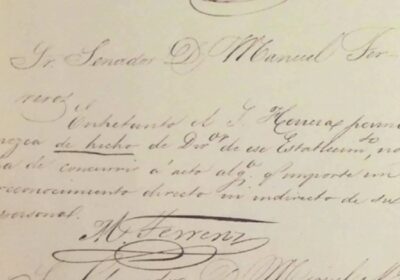 Sr. Senador D. Manuel Fer-
reros
Entretanto el S. Herrera perma
nezca de hicho de Dror de ese Establecimto, no
ha de concurrir á acto algo. q. importe un
reconocimiento directo ni indirecto de su
personal.
M. Ferreros
D. Manuel